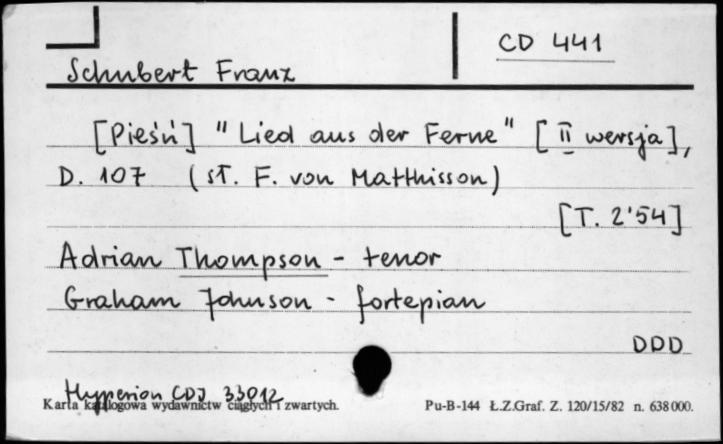 CD 441
Schubert Franz
[Pieśń] "Lied aus der Ferne" [II wersja],
D. 107 (sł. F. von Matthisson)
[T. 2'54]
Adrian Thompson - tenor
Graham Johnson - fortepian
DDD
Hyperion CDJ 33012
Karta katalogowa wydawnictw ciągłych i zwartych.
Pu-B-144 Ł.Z.Graf. Z. 120/15/82 n. 638 000.